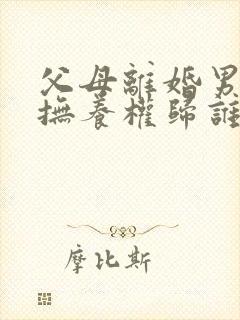 父母離婚男
撫養權歸誰
摩比斯